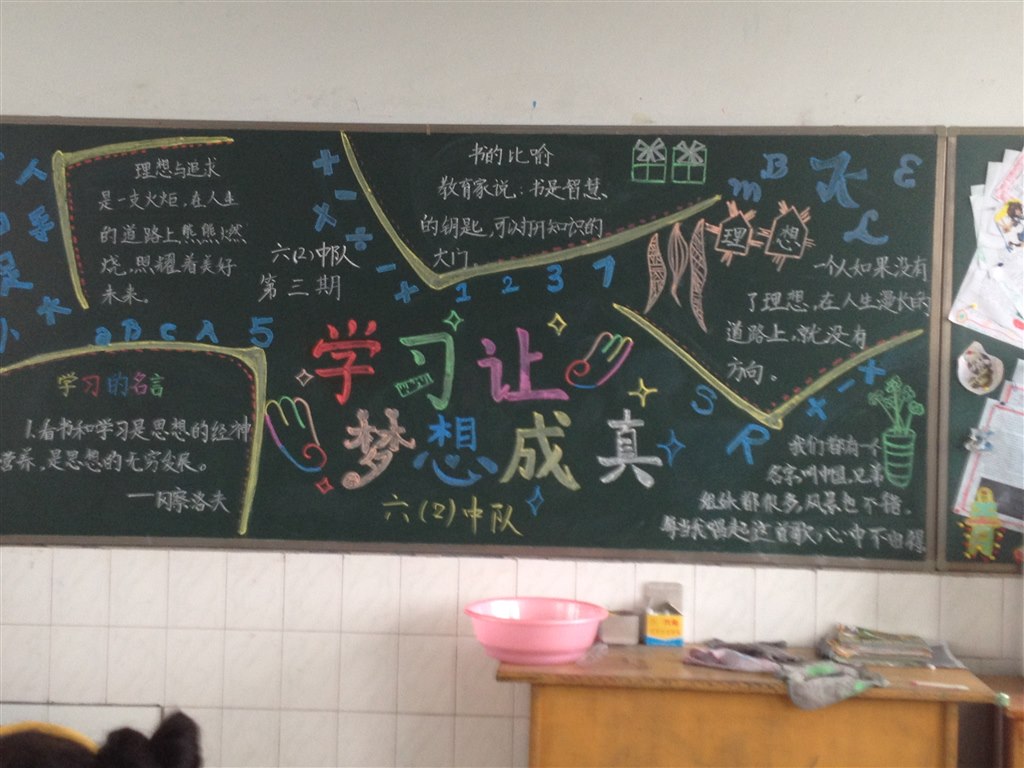 理想与追求
是一支火炬,在人生
的道路上熊熊燃
烧,照耀着美好
未来。
六(2)中队
第三期
书的比喻
教育家说:书是智慧
的钥匙,可以打开知识的
大门。
+
-
×
÷
-
+
1 2 3 7
m B K E
L
理想
一个人如果没有
了理想,在人生漫长的
道路上,就没有
方向。
人
小 水
a B C A 5
学习的名言
1.看书和学习是思想的经神
营养,是思想的无穷发展。
——冈察洛夫
学习让
梦想成真
六(2)中队
S R × - +
我们都有一个
名字,叫中国,兄弟
姐妹都很多,风景也不错。
每当我唱起这首歌,心中不由得